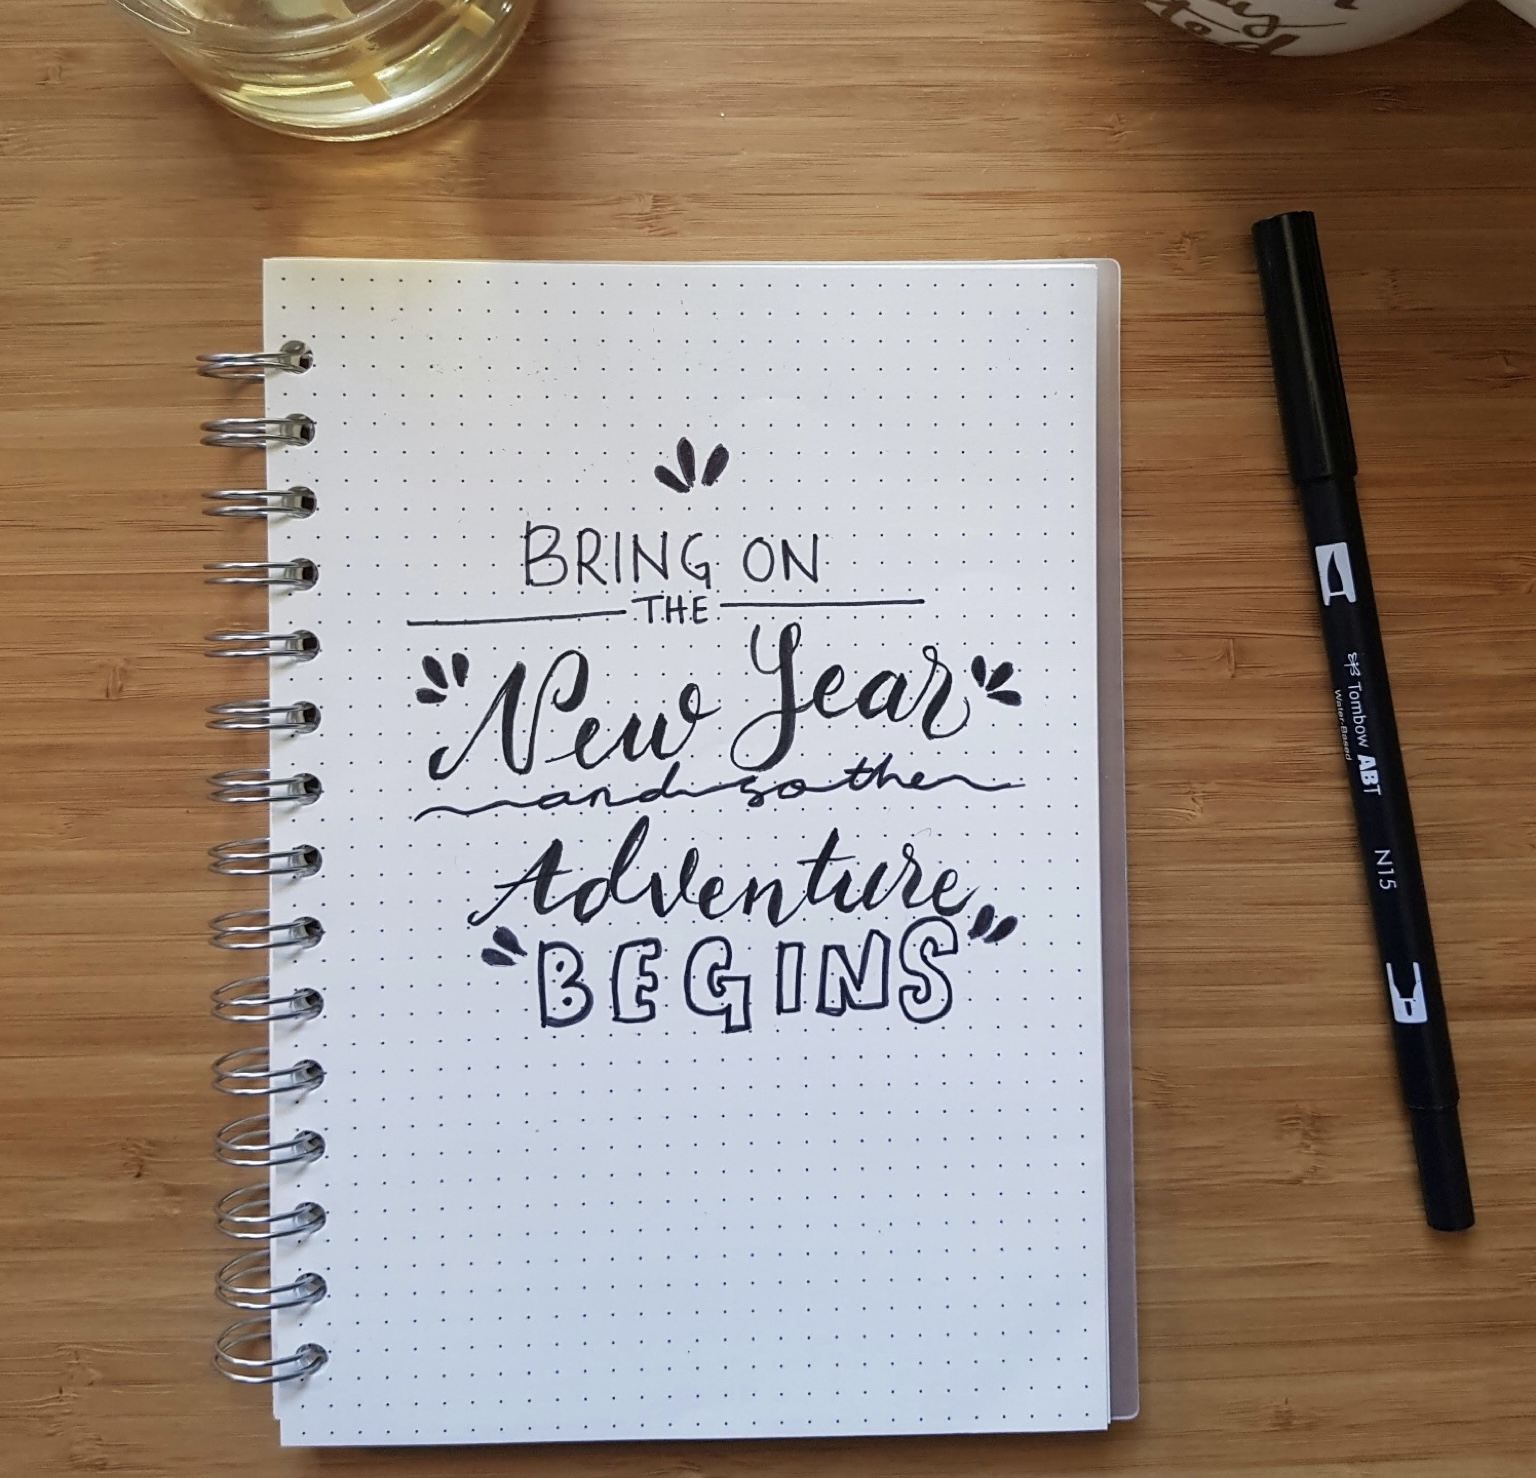 BRING ON
THE
New Year
and so the
Adventure
BEGINS
Tombow ABT
Water-Based
N15